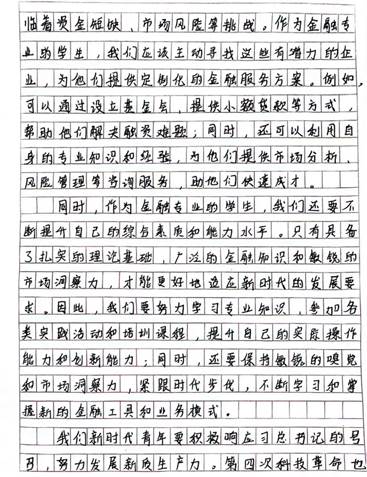 临着资金短缺、市场风险等挑战。作为金融专
业的学生，我们应该主动寻找这些有潜力的企
业，为他们提供定制化的金融服务方案。例如，
可以通过设立基金会，提供小额贷款等方式，
帮助他们解决融资难题；同时，还可以利用自
身的专业知识和经验，为他们提供市场分析、
风险管理等咨询服务，助他们快速成才。
同时，作为金融专业的学生，我们还要不
断提升自己的综合素质和能力水平。只有具备
了扎实的理论基础，广泛的金融知识和敏锐的
市场洞察力，才能更好地适应新时代的发展要
求。因此，我们要努力学习专业知识，参加各
类实践活动和培训课程，提升自己的实际操作
能力和创新能力；同时，还要保持敏锐的嗅觉
和市场洞察力，紧跟时代步伐，不断学习和掌
握新的金融工具和业务模式。
我们新时代青年要积极响应习总书记的号
召，努力发展新质生产力。第四次科技革命也